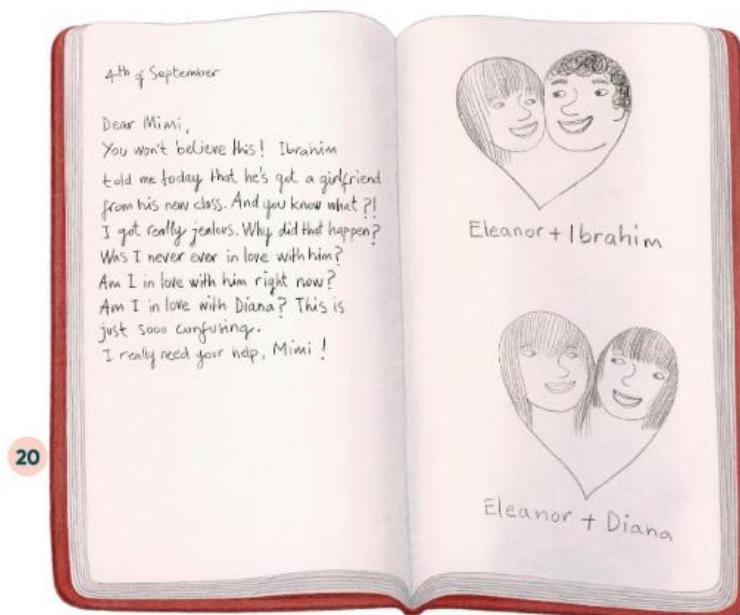 4th of September
Dear Mimi,
You won't believe this! Ibrahim
told me today that he's got a girlfriend
from his new class. And you know what?!
I got really jealous. Why did that happen?
Was I never ever in love with him?
Am I in love with him right now?
Am I in love with Diana? This is
just sooo confusing.
I really need your help, Mimi!
20
Eleanor + Ibrahim
Eleanor + Diana